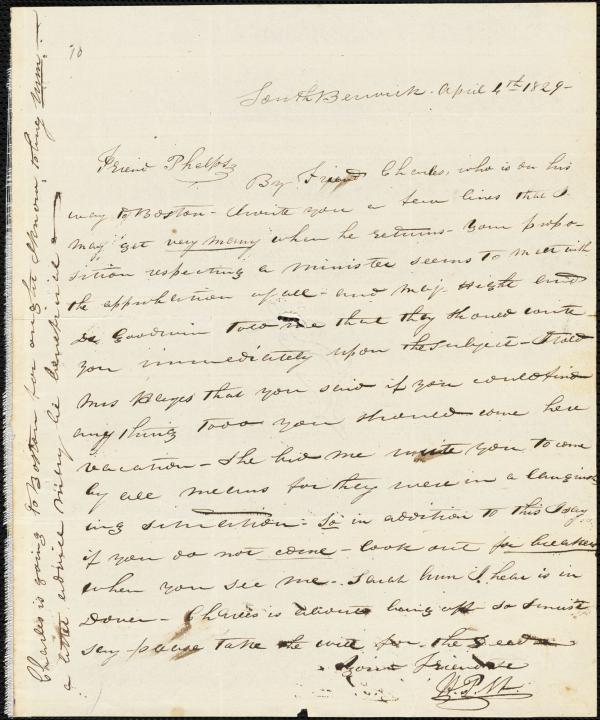 70
South Berwick. April 4th 1829-
Friend Phelps
By Friend Charles, who is on his
way to Boston - I write you a few lines that I
may get very many when he returns - Your propo-
sition respecting a minister seems to meet with
the approbation of all - and Maj. Hight and
Dr Goodwin told me that they should write
you immediately upon the subject - I told
Mrs Hayes that you said if you could find
any thing to do you should come here
vacation - She bid me invite you to come
by all means for they were in a languish-
ing situation - So in addition to this I say
if you do not come - look out for breakers
when you see me - Sarah Ann I hear is in
Dover - Charles is about being off so I must
say please take the will for the Deed
Your Friend
Charles is going to Boston for aught I know, to buy
a little advice may be beneficial